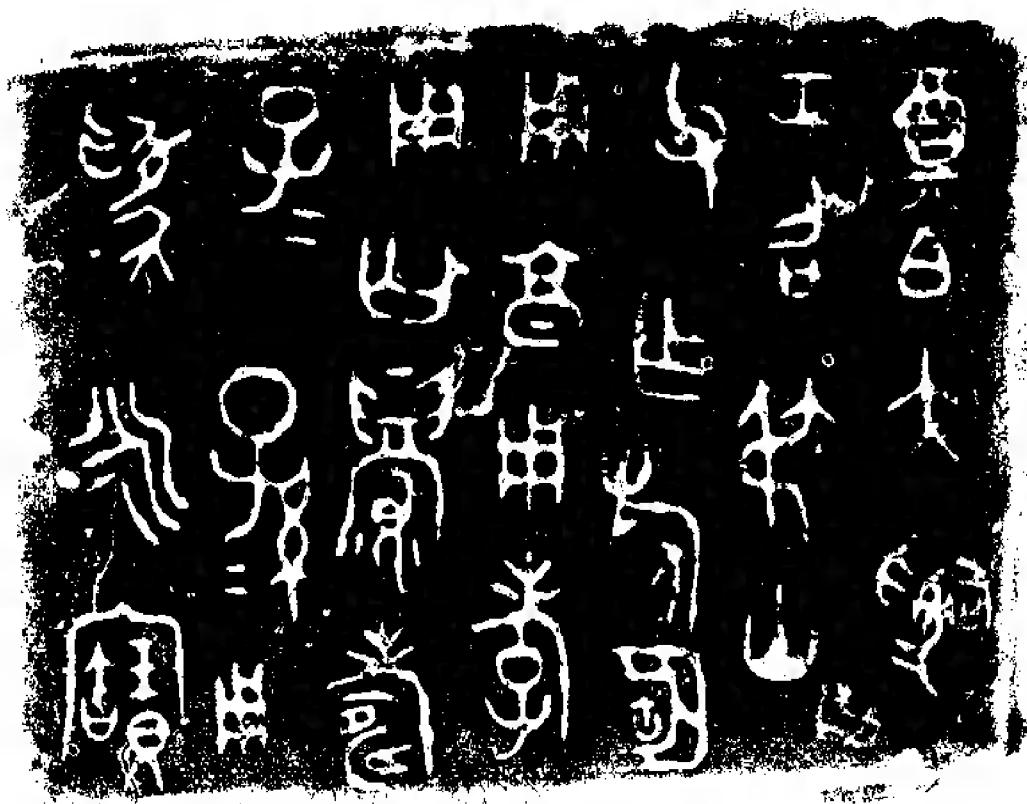 奠白大嗣
工召弔山
父乍旅𠤳
用亯用孝
用匄眉壽
子=孫=用
為永寶